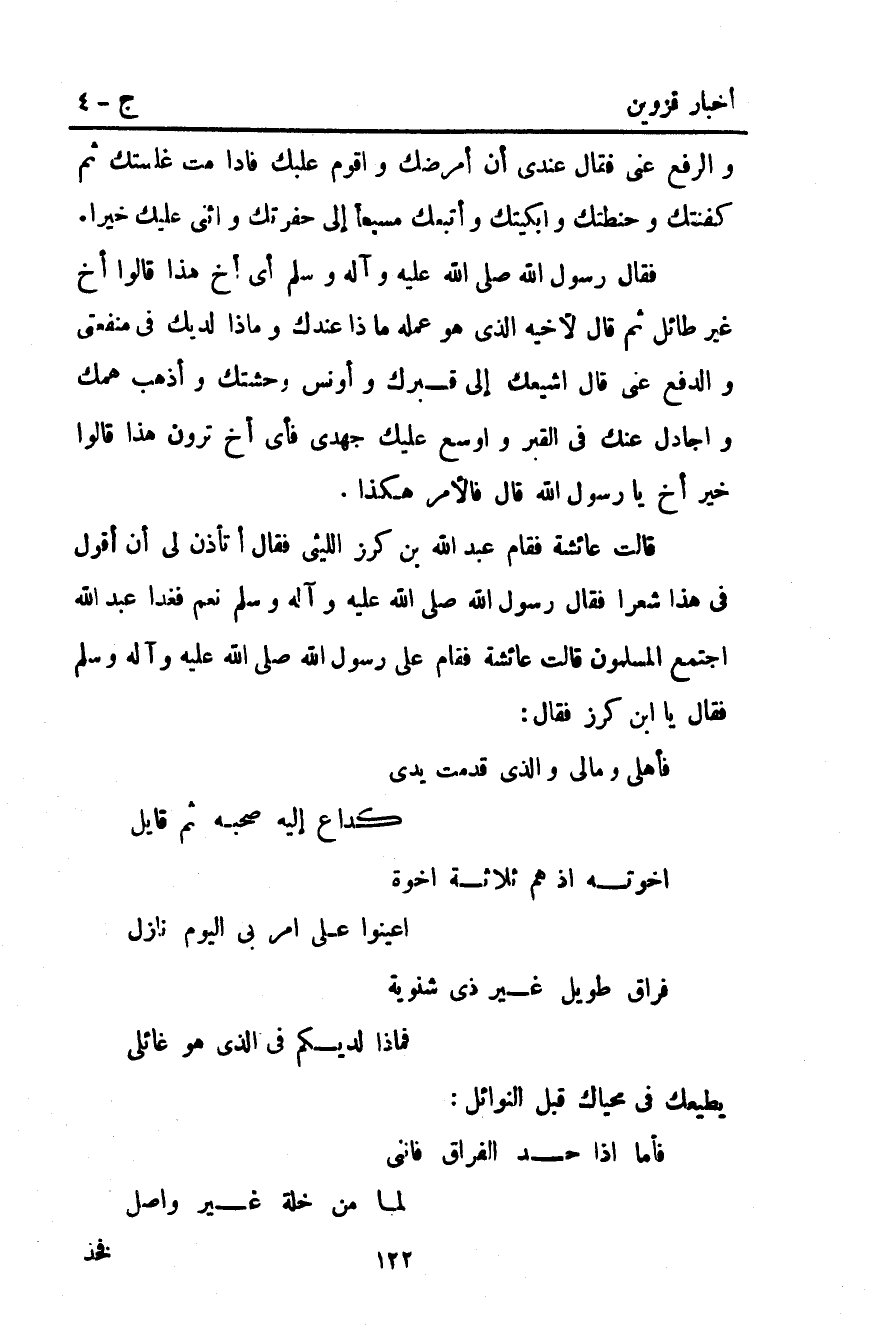 أخبار قزوين ج - ٤
و الرفع عنى فقال عندى أن أمرضك و اقوم عليك فاذا مت غاستك ثم
كفنتك و حنطتك و ابكيتك و أتبعك مسبعاً إلى حفرتك و اثنى عليك خيرا.
فقال رسول الله صلى الله عليه و آله و سلم أى أخ هذا قالوا أخ
غير طائل ثم قال لآخيه الذى هو عمله ما ذا عندك و ماذا لديك فى منفعتى
و الدفع عنى قال اشيعك إلى قبرك و أونس وحشتك و أذهب همك
و اجادل عنك فى القبر و اوسع عليك جهدى فأى أخ ترون هذا قالوا
خير أخ يا رسول الله قال فالآمر هكذا .
قالت عائشة فقام عبد الله بن كرز الليثى فقال أ تأذن لى أن أقول
فى هذا شعرا فقال رسول الله صلى الله عليه و آله و سلم نعم فغدا عبد الله
اجتمع المسلمون قالت عائشة فقام على رسول الله صلى الله عليه و آله و سلم
فقال يا ابن كرز فقال:
فأهلى و مالى و الذى قدمت يدى
كداع إليه صحبه ثم قايل
اخوته اذ هم ثلاثة اخوة
اعينوا على امر بى اليوم نازل
فراق طويل غير ذى شنوية
فماذا لديكم فى الذى هو غائلى
يطيعك فى محياك قبل النوائل :
فأما اذا حد الفراق فاننى
لما من خلة غير واصل
١٢٢ فخذ